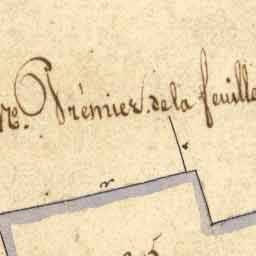 re. Prémier. de la feuille